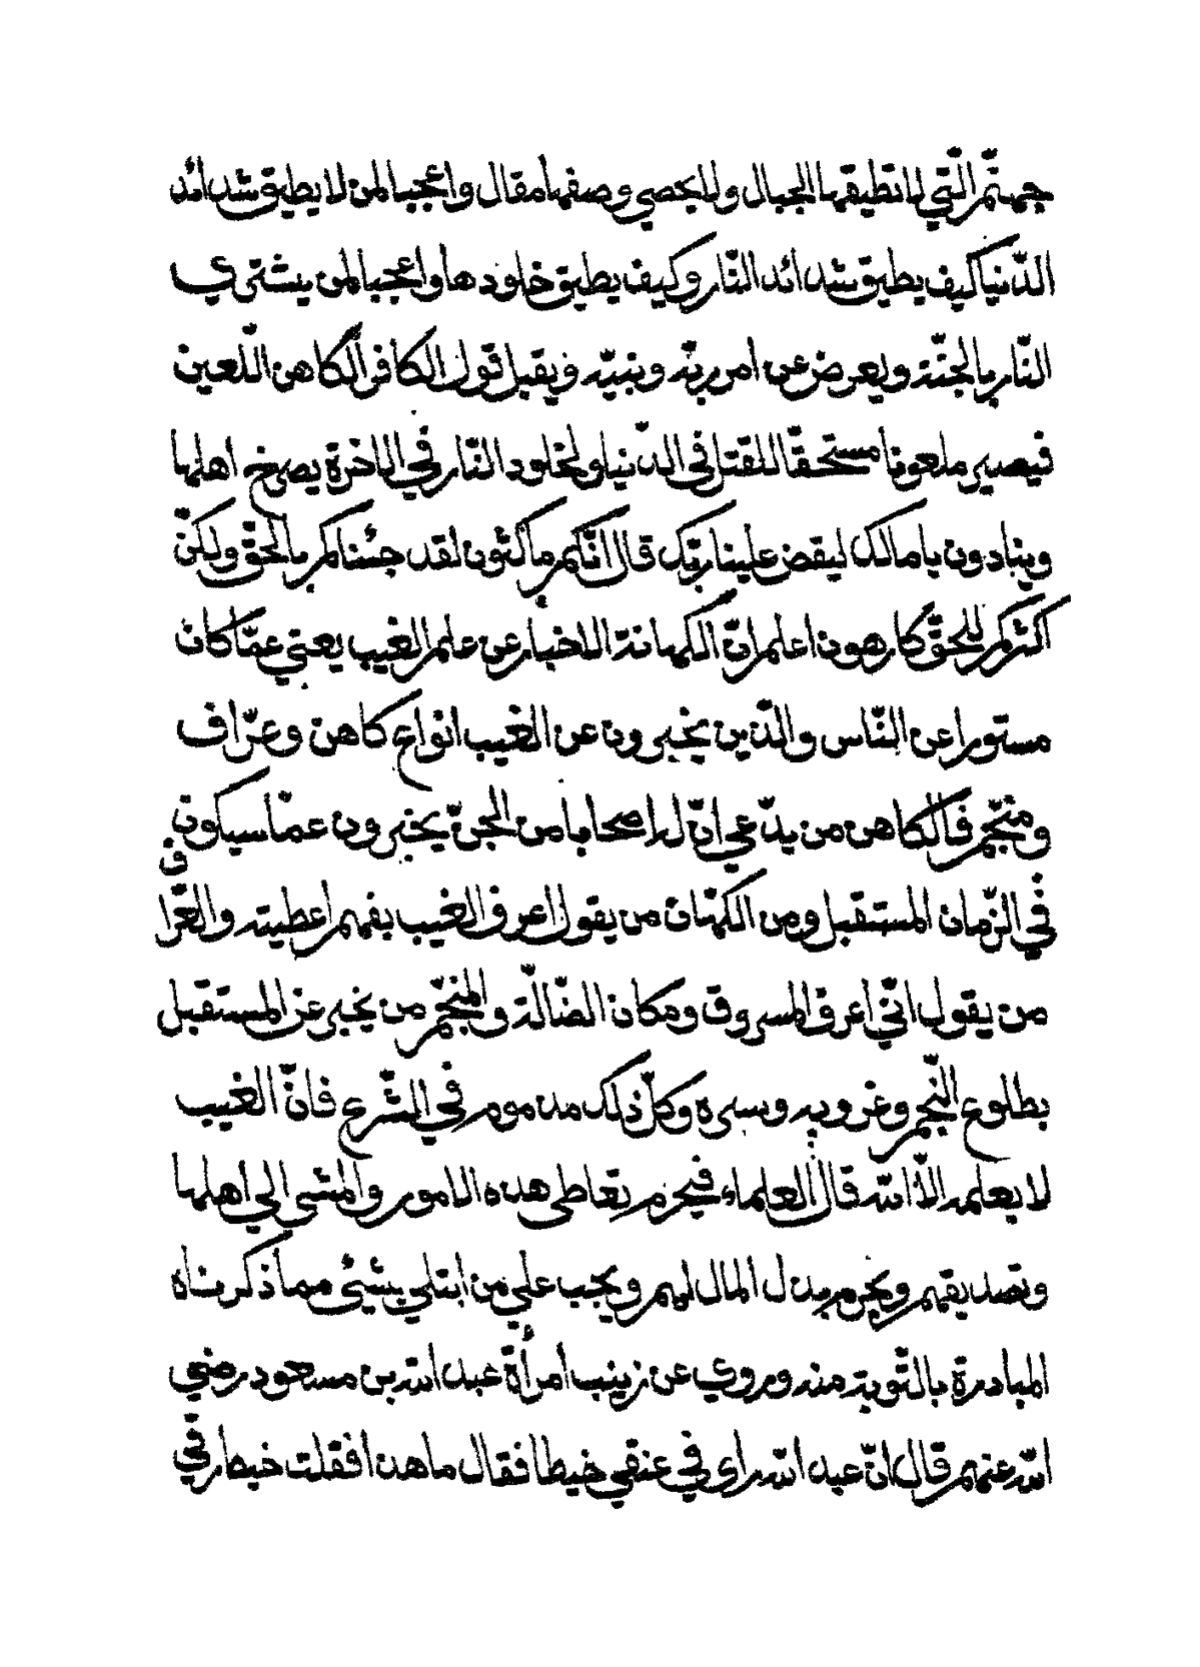 جهنّم الّتي لا تطيقها الجبال ولا يحصي وصفها مقال واعجبا لمن لا يطيق شدائد
الدّنيا كيف يطيق شدائد النّار وكيف يطيق خلودها واعجبا لمن يشتري
النّار بالجنّة ويعرض عن امر ربّه ونبيّه ويقبل قول الكافر الكاهن اللّعين
فيصير ملعونا مستحقّا للقتل في الدّنيا ولخلود النّار في الاخرة يصرخ اهلها
وينادون يا مالك ليقض علينا ربّك قال انّكم ماكثون لقد جئناكم بالحقّ ولكنّ
اكثركم للحقّ كارهون اعلم انّ الكهانة الاخبار عن علم الغيب يعني عمّا كان
مستورا عن النّاس والّذين يخبرون عن الغيب انواع كاهن وعرّاف
ومنجّم فالكاهن من يدّعي انّ له اصحابا من الجنّ يخبرون عمّا سيكون
في الزّمان المستقبل ومن الكهّان من يقول اعرف الغيب بفهم اعطيته والعرّاف
من يقول انّي اعرف المسروق ومكان الضّالّة والمنجّم من يخبر عن المستقبل
بطلوع النّجم وغروبه وسيره وكلّ ذلك مذموم في الشّرع فانّ الغيب
لا يعلمه الاّ الله قال العلماء فيحرم تعاطى هذه الامور والمشي الي اهلها
وتصديقهم ويحرم بذل المال لهم ويجب علي من ابتلي بشيئ مما ذكرناه
المبادرة بالتّوبة منه وروي عن زينب امرأة عبد الله بن مسعود رضي
الله عنهم قال انّ عبد الله راى في عنقي خيطا فقال ما هذا فقلت خيط رقّي